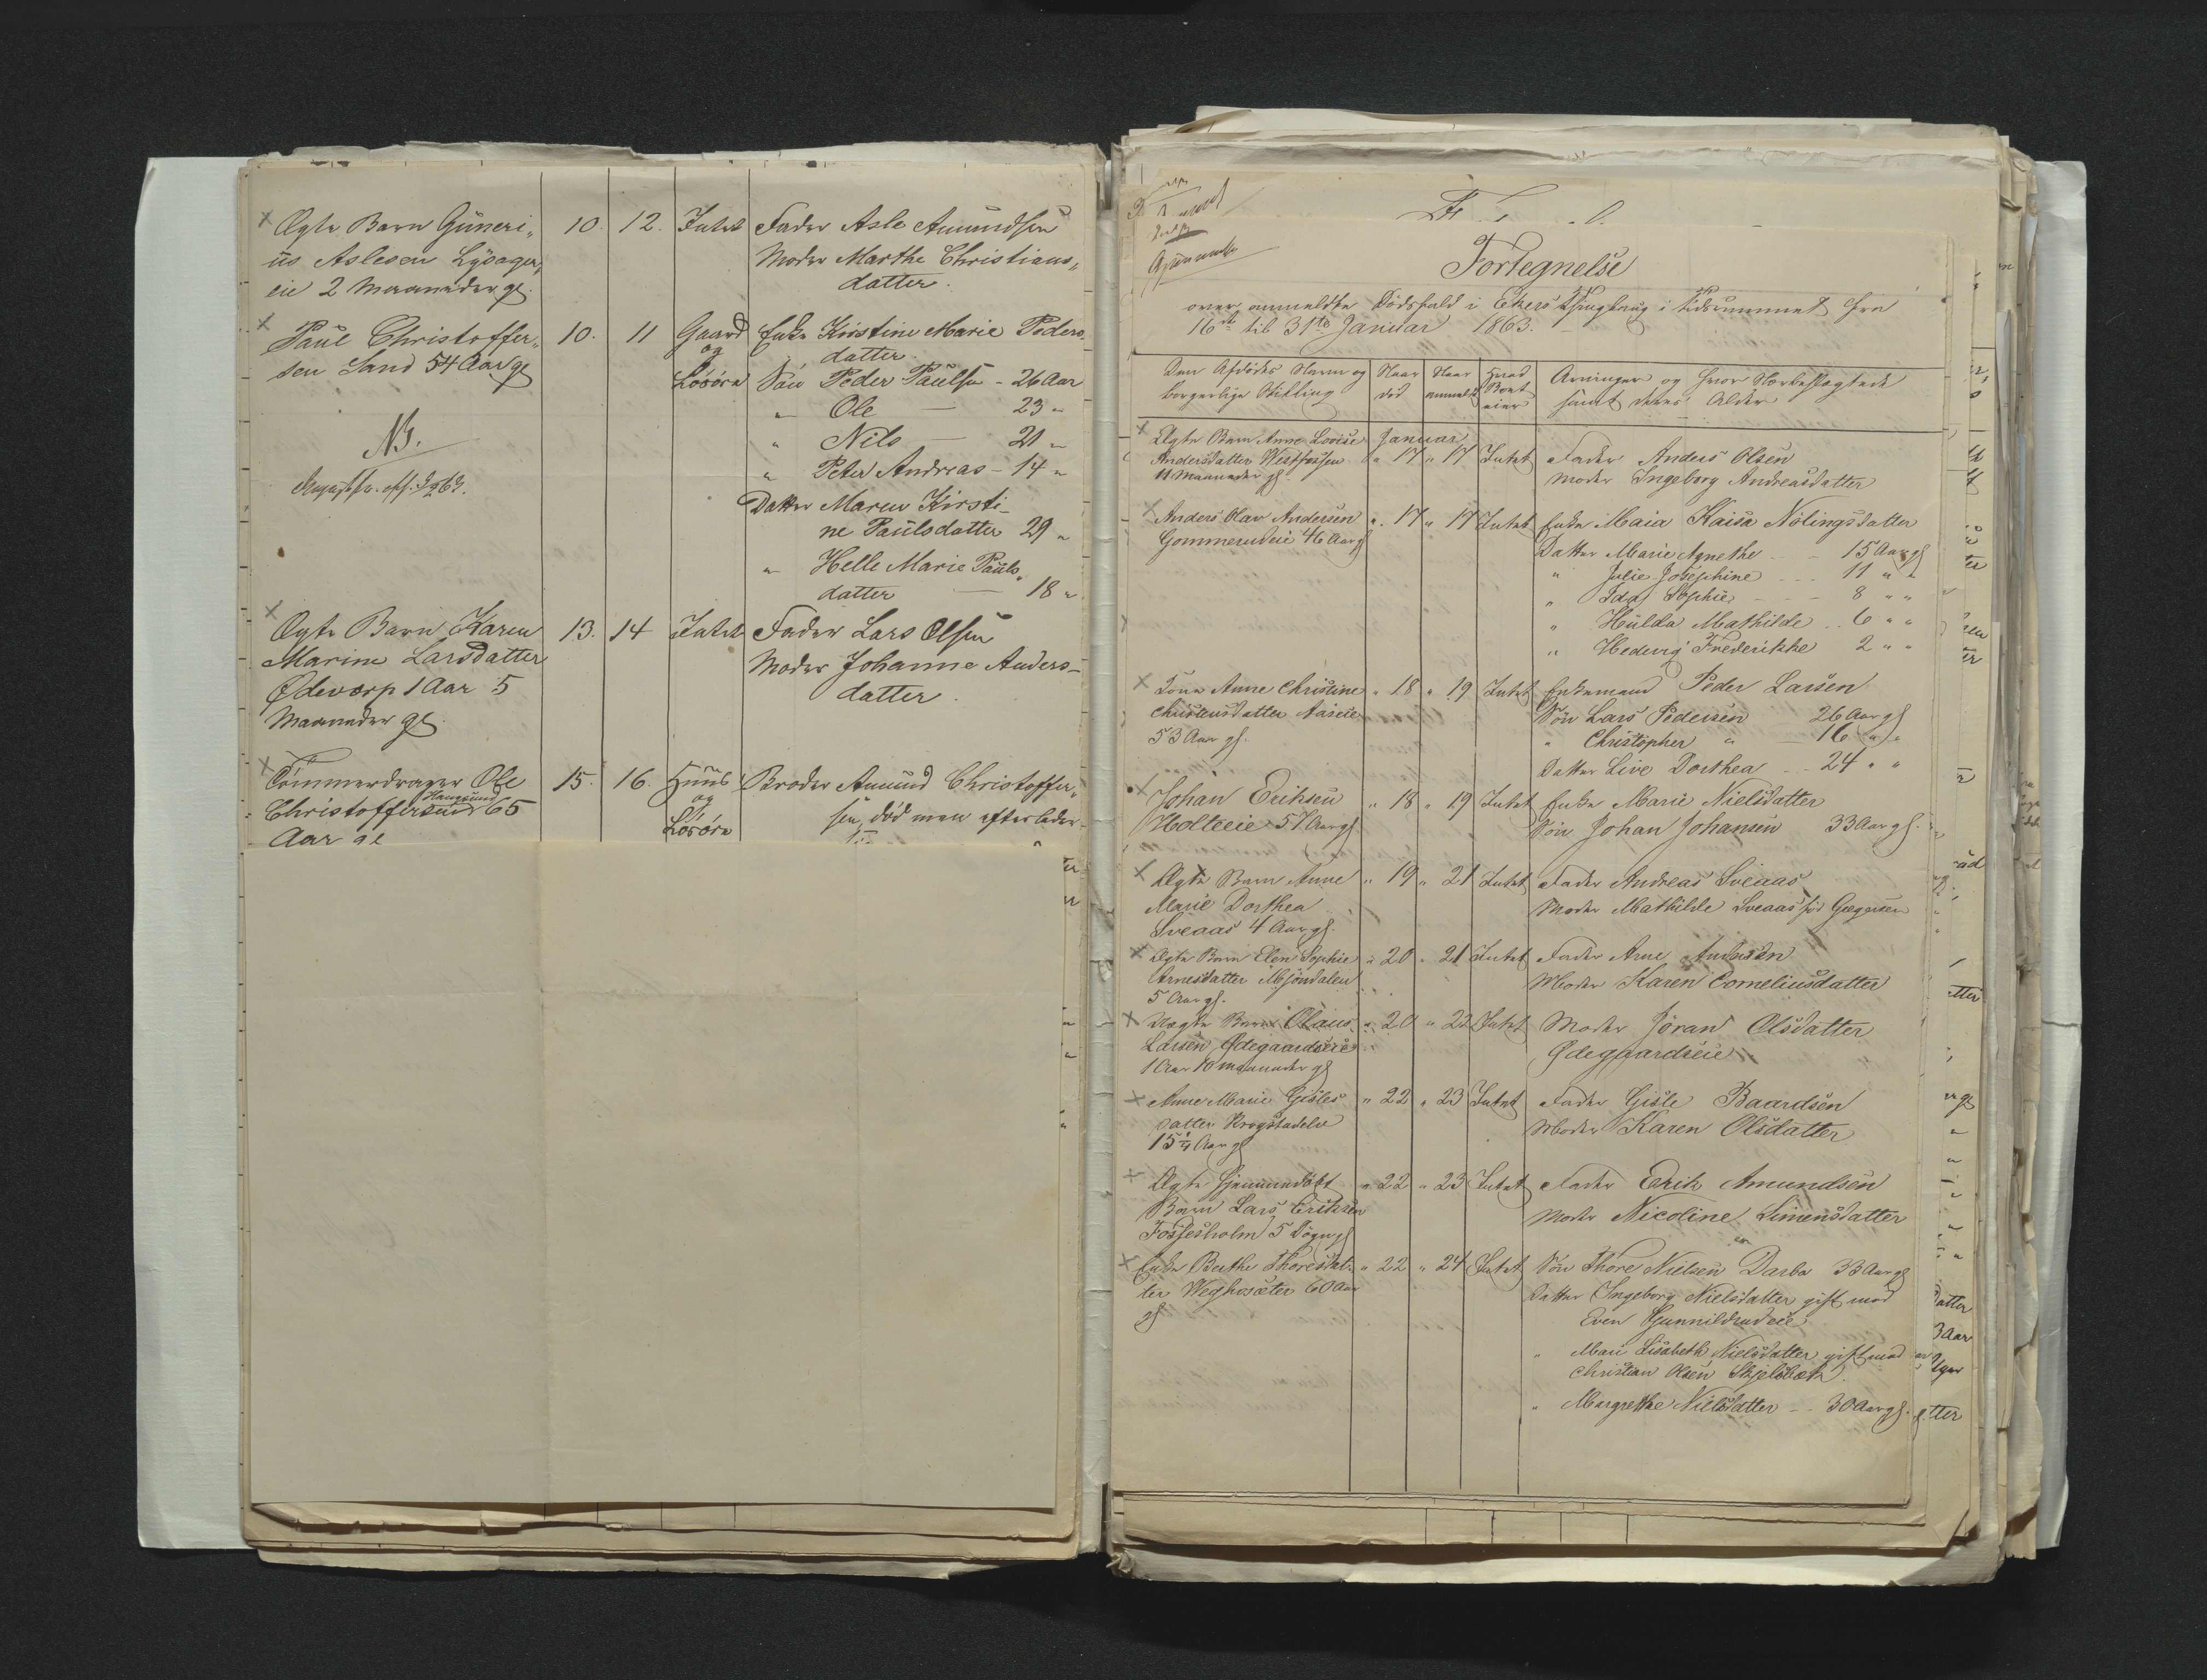 Ægte Barn Guneri„ 10. 12. Intet Fader Asle Amundsen
us Aslesen Lysager„ Moder Marthe Christians„
eie 2 Maaneder gl. datter.
Paul Christoffer„ 10. 11 Gaard Enke Kirstine Marie Peders„
sen Sand 54 Aar gl og datter.
Løsøre Søn Peder Paulsen - 26 Aar
„ Ole — 23 „
NB. „ Nils — 21 „
„ Peter Andreas - 14 „
Datter Maren Kirsti-
ne Paulsdatter 29 „
„ Helle Marie Pauls„
datter — 18 „
Ægte Barn Karen 13. 14 Intet Fader Lars Olsen
Marine Larsdatter Moder Johanne Anders-
Ødevorp 1 Aar 5 datter.
Maaneder gl.
Tømmerdrager Ole 15. 16. Huus Broder Amund Christoffer„
Haugsund
Christoffersen 65 og sen, død men efterlader
Aar gl Løsøre
Fortegnelse
over anmeldte Dødsfald i Ekers Thinglaug i Tidsrummet fra
16de til 31te Januar 1863.
Den Afdødes Navn og Naar Naar Hvad Arvinger og hvor Nærbeslægtede
borgerlige Stilling død anmeldt Boet eier samt deres Alder
Ægte Barn Anne Lovise Januar
Andersdatter Westfossen „ 17 „ 17 Intet Fader Anders Olsen
11 Maaneder gl. Moder Ingeborg Andreasdatter
Anders Olav Andersen „ 17 „ 17 Intet Enke Maia Kaisa Nölingsdatter
Gommerudeie 46 Aar gl Datter Marie Agnethe - - 15 Aar gl
„ Julie Josephine - - - 11 „ „
„ Ida Sophie - - - 8 „ „
„ Hulda Mathilde - - 6 „ „
„ Hedevig Frederikke 2 „ „
Kone Anne Christine „ 18 „ 19 Intet Enkemand Peder Larsen
Christensdatter Aaseie Søn Lars Pedersen 26 Aar gl
53 Aar gl. „ Christopher „ — 16 „ „
Datter Live Dorthea - - 24 „ „
Johan Eriksen „ 18 „ 19 Intet Enke Marie Nielsdatter
Holteeie 57 Aar gl. Søn Johan Johansen 33 Aar gl.
Ægte Barn Anne „ 19 „ 21 Intet Fader Andreas Sveaas
Marie Dorthea Moder Mathilde Sveaas fød Gregersen
Sveaas 4 Aar gl.
Ægte Barn Elen Sophie „ 20 „ 21 Intet Fader Arne Andersen
Arnesdatter Mjøndalen Moder Karen Corneliusdatter
5 Aar gl.
Uægte Barn Olaus „ 20 „ 22 Intet Moder Jöran Olsdatter
Larsen Ødegaardseie Ødegaardseie
1 Aar 10 Maaneder gl
Anne Marie Gisles „ 22 „ 23 Intet Fader Gisle Baardsen
datter Krogstadelv Moder Karen Olsdatter
15 1/4 Aar gl
Ægte hjemmedøbt „ 22 „ 23 Intet Fader Erik Amundsen
Barn Lars Eriksen Moder Nicoline Simensdatter
Fossesholm 5 Døgn gl
Enke Berthe Thoresdat- „ 22 „ 24 Intet Søn Thore Nielsen Darbo 33 Aar gl
ter Weghosæter 60 Aar Datter Ingeborg Nielsdatter gift med
gl Even Gunnildrudeie
„ Mari Lisabeth Nielsdatter gift med
Christian Olsen Skjelsbæk
„ Margrethe Nielsdatter - - 30 Aar gl.